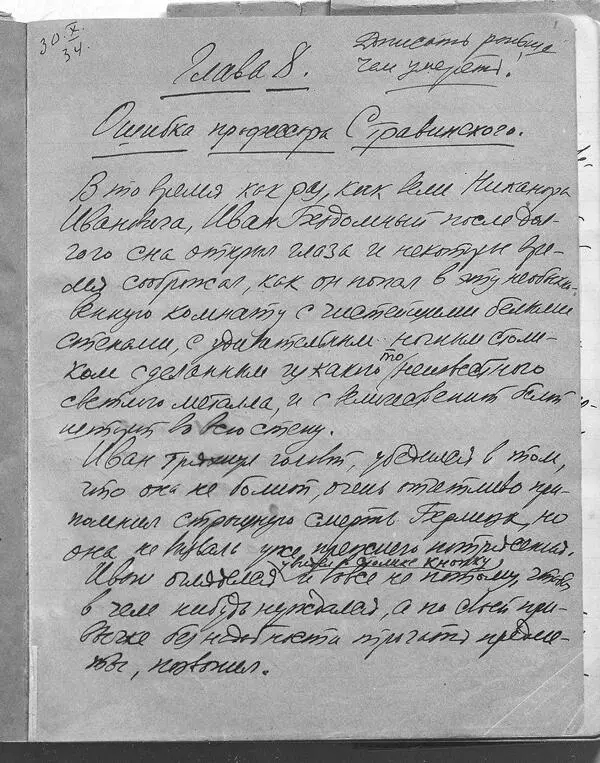 30.X.
34.
Дописать раньше
чем умереть!
Глава 8.
Ошибка профессора Стравинского.
В то время как раз, как вели Никанора
Ивановича, Иван Бездомный после дол-
гого сна открыл глаза и некоторое вре-
мя соображал, как он попал в эту необыкно-
венную комнату с чистейшими белыми
стенами, с удивительным ночным столи-
ком сделанным из какого то неизвестного
светлого металла, и с величавой белой
во всю стену.
Иван тряхнул головой, убедился в том,
что она не болит, очень отчетливо при-
помнил страшную смерть Берлиоза, но
она не вызвала уже прежнего потрясения.
увидел в столике кнопку
Иван огляделся и вовсе не потому, чтобы
в чем нибудь нуждался, а по своей при-
вычке без надобности трогать предме-
ты, позвонил.